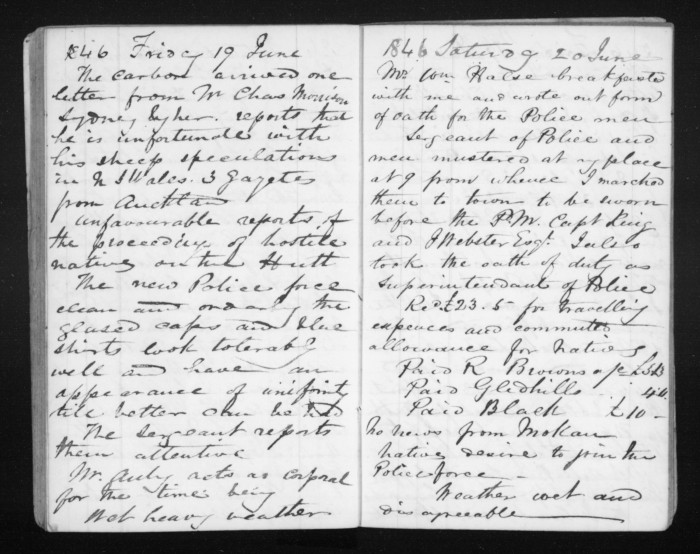 1846 Friday 19 June
The Carbon arrived one
letter from Mr Chas Morrison
Sydney reports that
he is unfortunate with
his sheep speculations
in N S Wales. 3 Gazettes
from Auckland
unfavourable reports of
the proceeding of hostile
natives on the Hutt
The new Police force
clean and orderly the
glased caps and blue
shirts look tolerably
well and have an
appearance of uniformity
till better can be had
The Sergeant reports
them attentive
Mr acts as corporal
for the time being
Wet heavy weather
1846 Saturday 20 June
Mr Wm Halse breakfasted
with me and wrote out form
of oath for the Police men
Sergeant of Police and
men mustered at my place
at 9 from whence I marched
them to town to be sworn
before the P.M. Capt King
and J Webster Esqr. I also
took the oath of duty as
Superintendant of Police
Recd £23.5 for travelling
expences and commuted
allowance for Natives
Paid R Browns a/c
Paid Gledhills
Paid Black £10 -
No news from Mokau
Natives desire to join the
Police force
Weather wet and
disagreeable